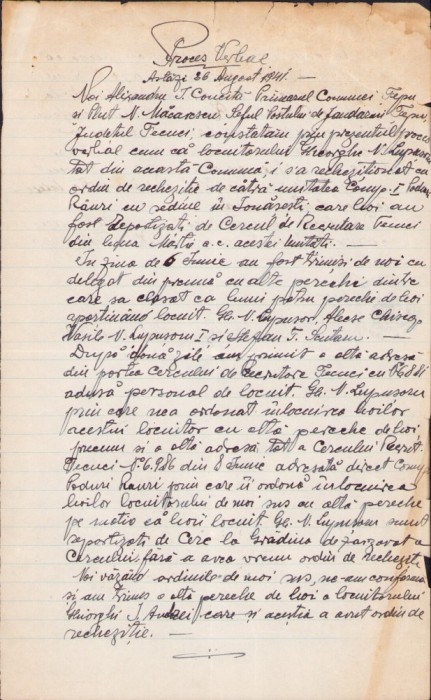 Proces Verbal
Astăzi 26 August 1941. —
Noi Alixandru I. Primarul Comunei Țepu
și Plut. N. Măcărescu Șeful Postului de Jandarmi Țepu,
Județul Tecuci, constatăm prin prezentul proces
verbal cum că locuitorului Gheorghe V. Lupusoru
tot din această Comună, i s'a rechiziționat cu
ordin de rechiziție de către unitatea Comp. I Poduri
Râuri cu sediul în Ionășești, care boi au
fost repartizați de Cercul de Recrutare Tecuci
din luna Martie a.c. acestei Unități. —
În ziua de 6 Iunie au fost trimiși de noi cu
delegat din preună cu alte perechi dintre
care sa ales ca buni patru perechi de boi
aparținând locuit. Gh. V. Lupusor,
Vasile V. Lupusoru I și Ștefan T. —
După două zile am primit o altă adresă
din partea Cercului de Recrutare Tecuci cu No
adusă personal de locuit. Gh. V. Lupusoru
prin care nea ordonat înlocuirea boilor
acestui locuitor cu altă pereche de boi
precum și o altă adresă tot a Cercului Recrut.
Tecuci No 6.986 din 8 Iunie adresată direct Comp.
Poduri Râuri prin care îi ordonă înlocuirea
boilor locuitorului de mai sus cu altă pereche
pe motiv că boii locuit. Gh. V. Lupusoru sunt
repartizați de Cerc la Grădina de zarzavat a
Cercului, fără a avea vreun ordin de rechiziție
Noi văzând ordinile de mai sus, ne-am conformat
și am trimis o altă pereche de boi a locuitorului
Gheorghe I. Andrei care și aceștia a avut ordin de
rechiziție. —